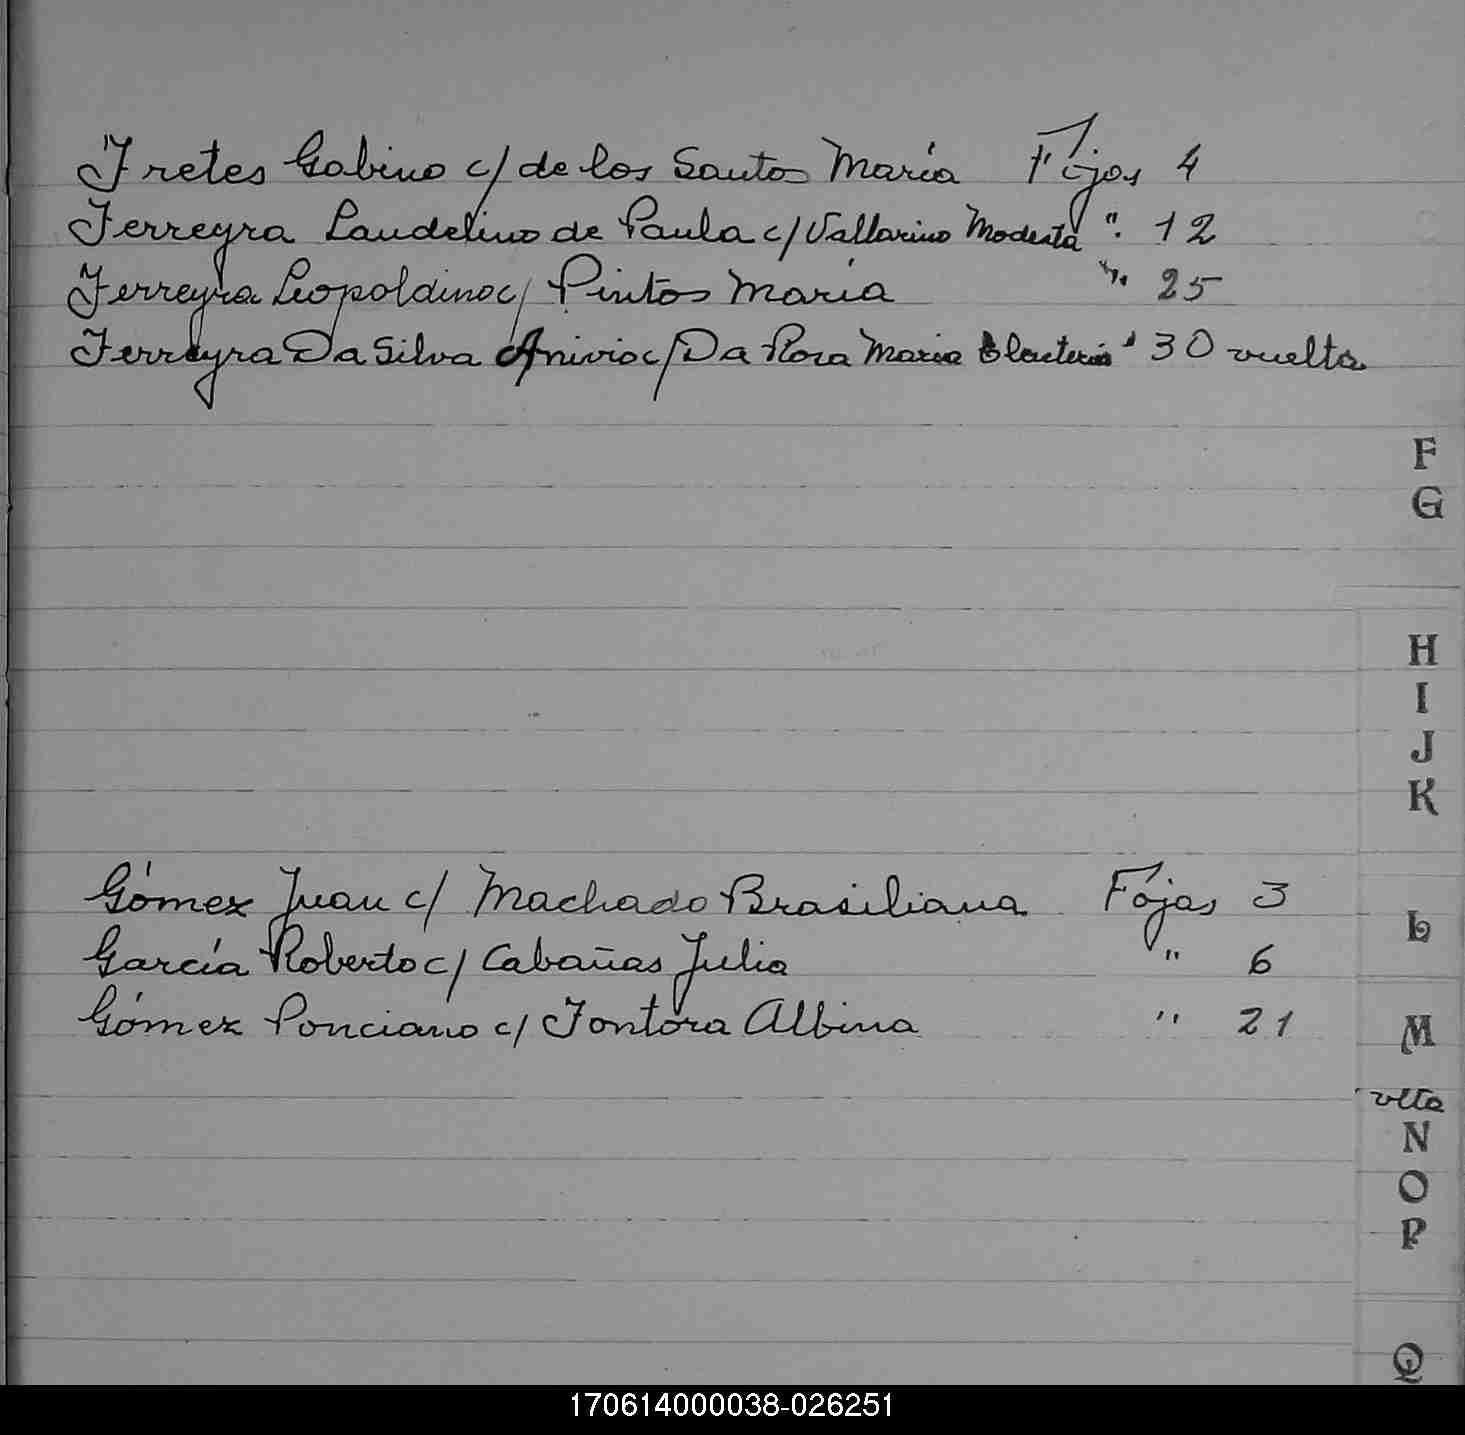 Fretes Gabino c/ de los Santos María Fojas 4
Ferreyra Laudelino de Paula c/ Vallarino Modesta " 12
Ferreyra Leopoldino c/ Pintos María " 25
Ferreyra Da Silva Anivio c/ Da Rosa Maria Eleuteria " 30 vuelta
F
G
H
I
J
K
Gómez Juan c/ Machado Brasiliana Fojas 3
García Roberto c/ Cabañas Julia " 6
L
Gómez Ponciano c/ Fontora Albina " 21
M
vlta
N
O
P
Q
170614000038-026251